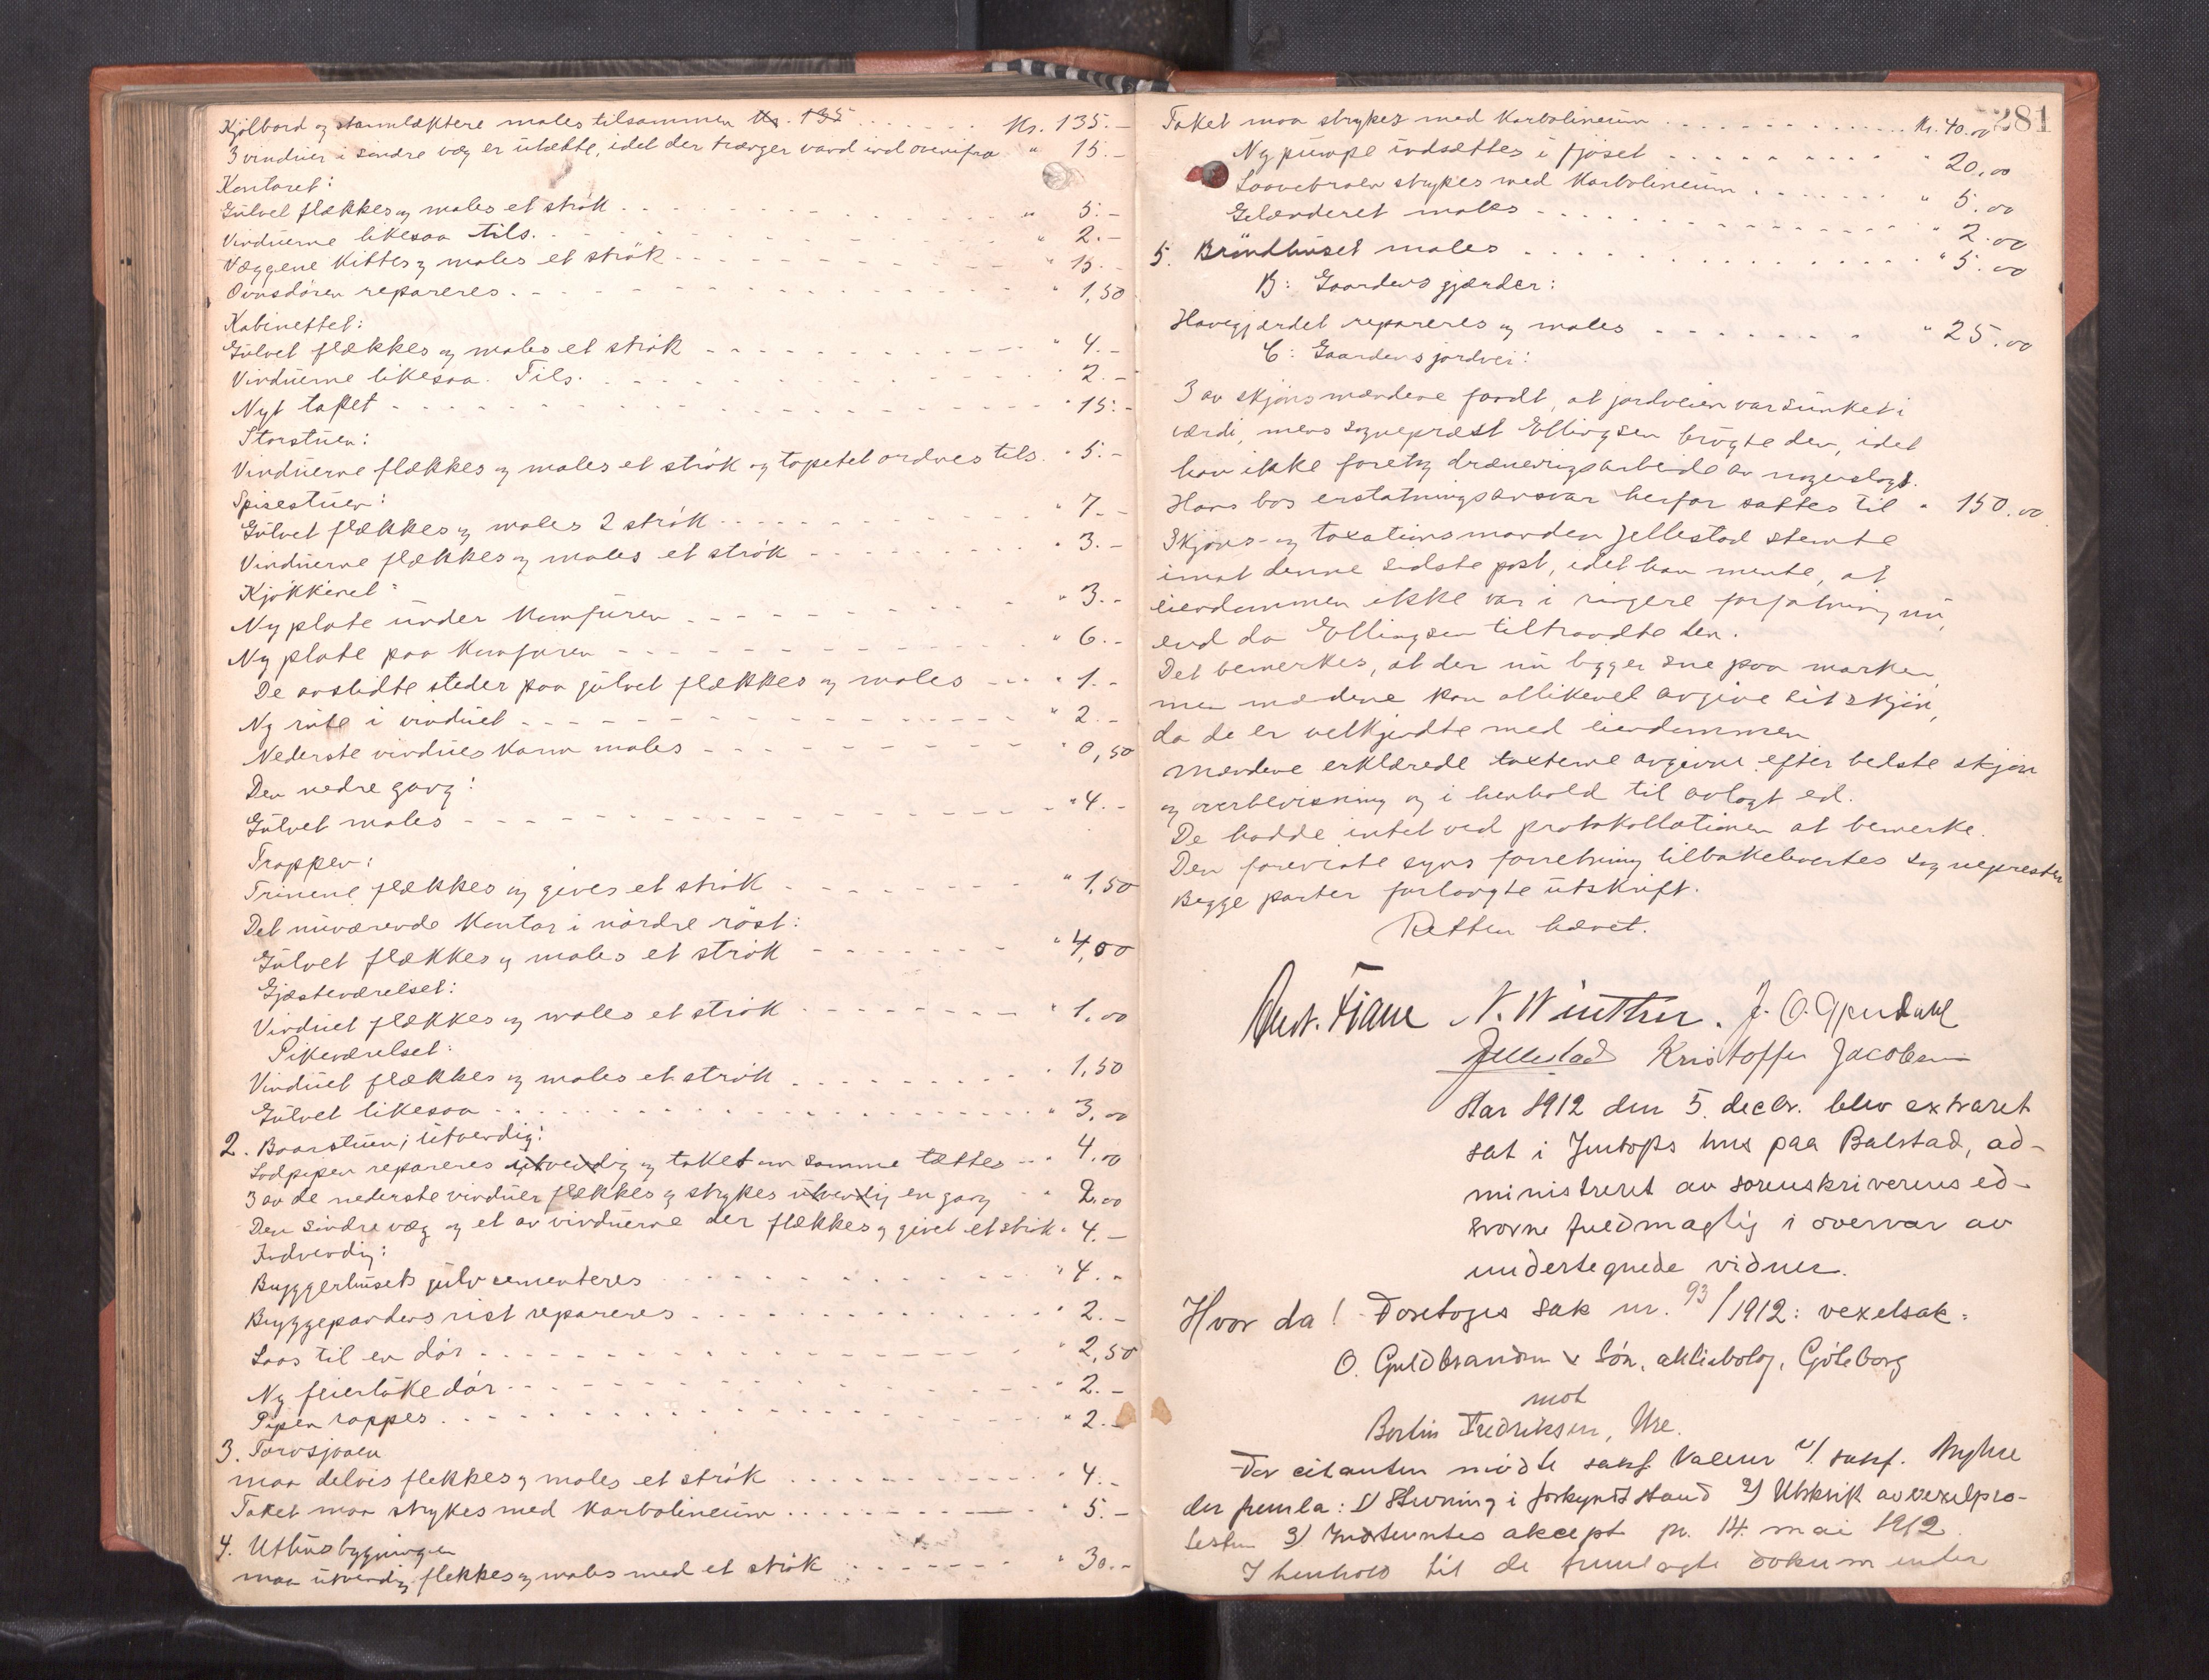 Kjölbord og stamlektere males tilsammen Kr. 135 . . . . . . Kr. 135.–
3 vinduer i søndre væg er utætte, idet der trænger vand ind ovenifra " 15.–
Kontoret:
Gulvet flækkes og males et strøk . . . " 5.–
Vinduerne likesaa tils. . . . " 2.–
Væggene kittes og males et strøk . . . " 15.–
Ovnsdøren repareres . . . " 1,50
Kabinettet:
Gulvet flækkes og males et strøk . . . " 4.–
Vinduerne likesaa. Tils. . . . " 2.–
Nyt tapet . . . " 15.–
Storstuen:
Vinduerne flækkes og males et strøk og tapetet ordnes tils. " 5.–
Spisestuen:
Gulvet flækkes og males 2 strøk . . . " 7.–
Vinduerne flækkes og males et strøk . . . " 3.–
Kjøkkenet:
Ny plate under Komfuren . . . " 3.–
Ny plate paa Komfuren . . . " 6.–
De avslidte steder paa gulvet flækkes og males . . . " 1.–
Ny rute i vinduet . . . " 2.–
Nederste vindues karm males . . . " 0,50
Den nedre gang:
Gulvet males . . . " 4.–
Trappen:
Trinene flækkes og gives et strøk . . . " 1,50
Det nuværende Kontor i nordre röst:
Gulvet flækkes og males et strøk . . . " 4,00
Gjæsteværelset:
Vinduet flækkes og males et strøk . . . " 1,00
Pikeværelset:
Vinduet flækkes og males et strøk . . . " 1,50
Gulvet likesaa . . . " 3,00
2. Baarstuen; utvendig:
Lodpipen repareres utvendig og taket om samme tættes . . . " 4.00
3 av de nederste vinduer flækkes og strykes utvendig en gang . . " 2,00
Den søndre væg og et av vinduerne der flækkes og givet et strøk " 4.–
Indvendig:
Bryggerhusets gulv cementeres . . . " 4.–
Bryggepandens rist repareres . . . " 2.–
Laas til en dør . . . " 2,50
Ny feierlukedør . . . " 2.–
Pipen rappes . . . " 2.–
3. Torvsjaaen
maa delvis flekkes og males et strøk . . . " 4.–
Taket maa strykes med Karbolineum . . . " 5.–
4. Uthusbygningen
maa utvendig flekkes og males med et strøk . . . " 30.–
281
Taket maa strykes med Karbolineum . . . Kr. 40.00
Ny pumpe indsættes i fjøset . . . " 20,00
Laavebroen strykes med Karbolineum . . . " 5.00
Gelænderet males . . . " 2.00
5. Brøndhuset males . . . " 5.00
B: Gaardens gjærder:
Havegjærdet repareres og males . . . " 25.00
C: Gaardens jordvei:
3 av skjønsmændene fandt, at jordveien var sunket i
værdi, mens sogneprest Ellingsen brugte den, idet
han ikke foretog dræneringsarbeide av nogenslags.
Hans bos erstatningsansvar herfor sattes til " 150.00
Skjøns- og taxationsmanden Jellestad stemte
imot denne sidste post, idet han mente, at
eiendommen ikke var i ringere forfatning nu,
end da Ellingsen tiltraadte den.
Det bemerkes, at der nu ligger sne paa marken,
men mændene kan allikevel avgive sit skjøn,
da de er velkjendte med eiendommen
Mændene erklærede taxterne avgivne efter bedste skjøn
og overbevisning og i henhold til avlagt ed.
De hadde intet ved protokollationen at bemerke.
Den foreviste syns forretning tilbakeleveertes sognepresten
Begge parter forlangte utskrift.
Retten hævet.
N. Winther. J. O.
Jellestad Kristoffer Jacobsen
Aar 1912 den 5. decbr. blev extraret
sat i hus paa Balstad, ad-
ministreret av sorenskriverens ed-
svorne fuldmægtig i overvær av
undertegnede vidner.
Hvor da! Foretoges sak nr. 93/1912: vexelsak:
O. Guldbrandsen & Søn, aktiebolag, Göteborg
mot
Bertin Fredriksen, Ure.
For citanten mødte sakf. Valeur v/ sakf. Myhre
der fremla: 1) Stevning i forkyndt stand 2) Utskrift av vexelpro-
testen 3) Indstevntes akcept pr. 14. mai 1912.
I henhold til de fremlagte dokumenter